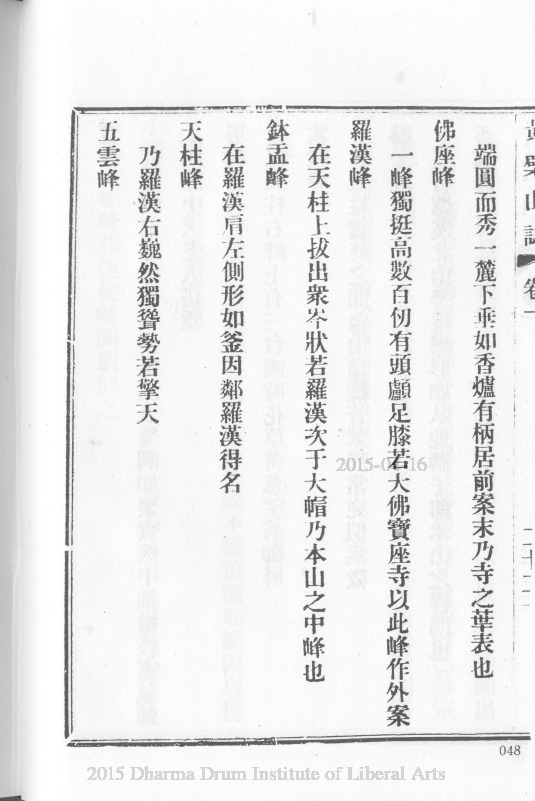 黃檗山誌 卷一
端圓而秀一麓下垂如香爐有柄居前案末乃寺之葉表也
佛座峰
一峰獨挺高數百仞有頭顱足膝若大佛寶座寺以此峰作外案
羅漢峰
在天柱上拔出衆岑狀若羅漢次于大帽乃本山之中峰也
鉢盂峰
在羅漢肩左側形如釜因鄰羅漢得名
天柱峰
乃羅漢右巍然獨聳勢若擎天
五雲峰
2015-01-16
048
2015 Dharma Drum Institute of Liberal Arts